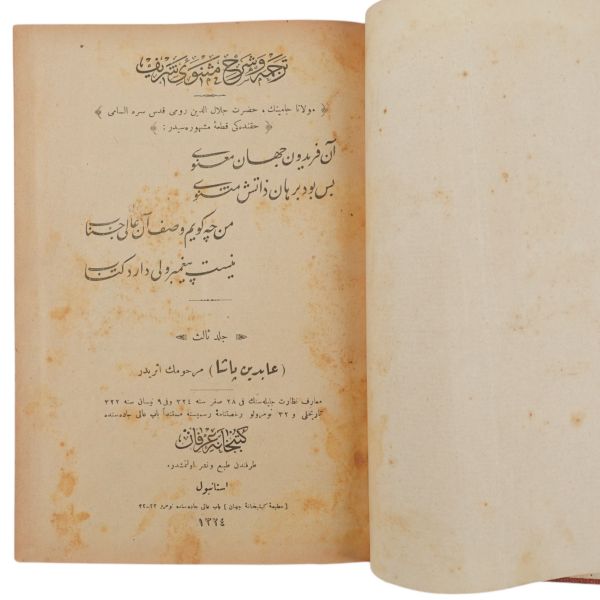 ترجمه و شرح مثنوی شریف
﴿ مولانا جامینك ، حضرت جلال الدین رومی قدس سره السامی ﴾
﴿ حقنده‌کی قطعهٔ مشهوره‌سیدر : ﴾
آن فریدون جهان معنوی
بس بود برهان ذاتش مثنوی
من چه کویم وصف آن عالی جناب
نیست پیغمبر ولی دارد کتاب
جلد ثالث
( عابدین پاشا ) مرحومك اثریدر
معارف نظارت جلیله‌سنك فی ٢٨ صفر سنه ٣٢٤ وفی ٩ نیسان سنه ٣٢٢
تاریخلی و ٣٢ نومرولو رخصتنامهٔ رسمیسنه مستنداً باب عالی جاده‌سنده
کتبخانهٔ عرفان
طرفندن طبع ونشر اولنمشدر
استانبول
( مطبعهٔ کتابخانهٔ جهان ) باب عالی جاده‌سنده نومرو ٢٢-٣٢
١٣٢٤